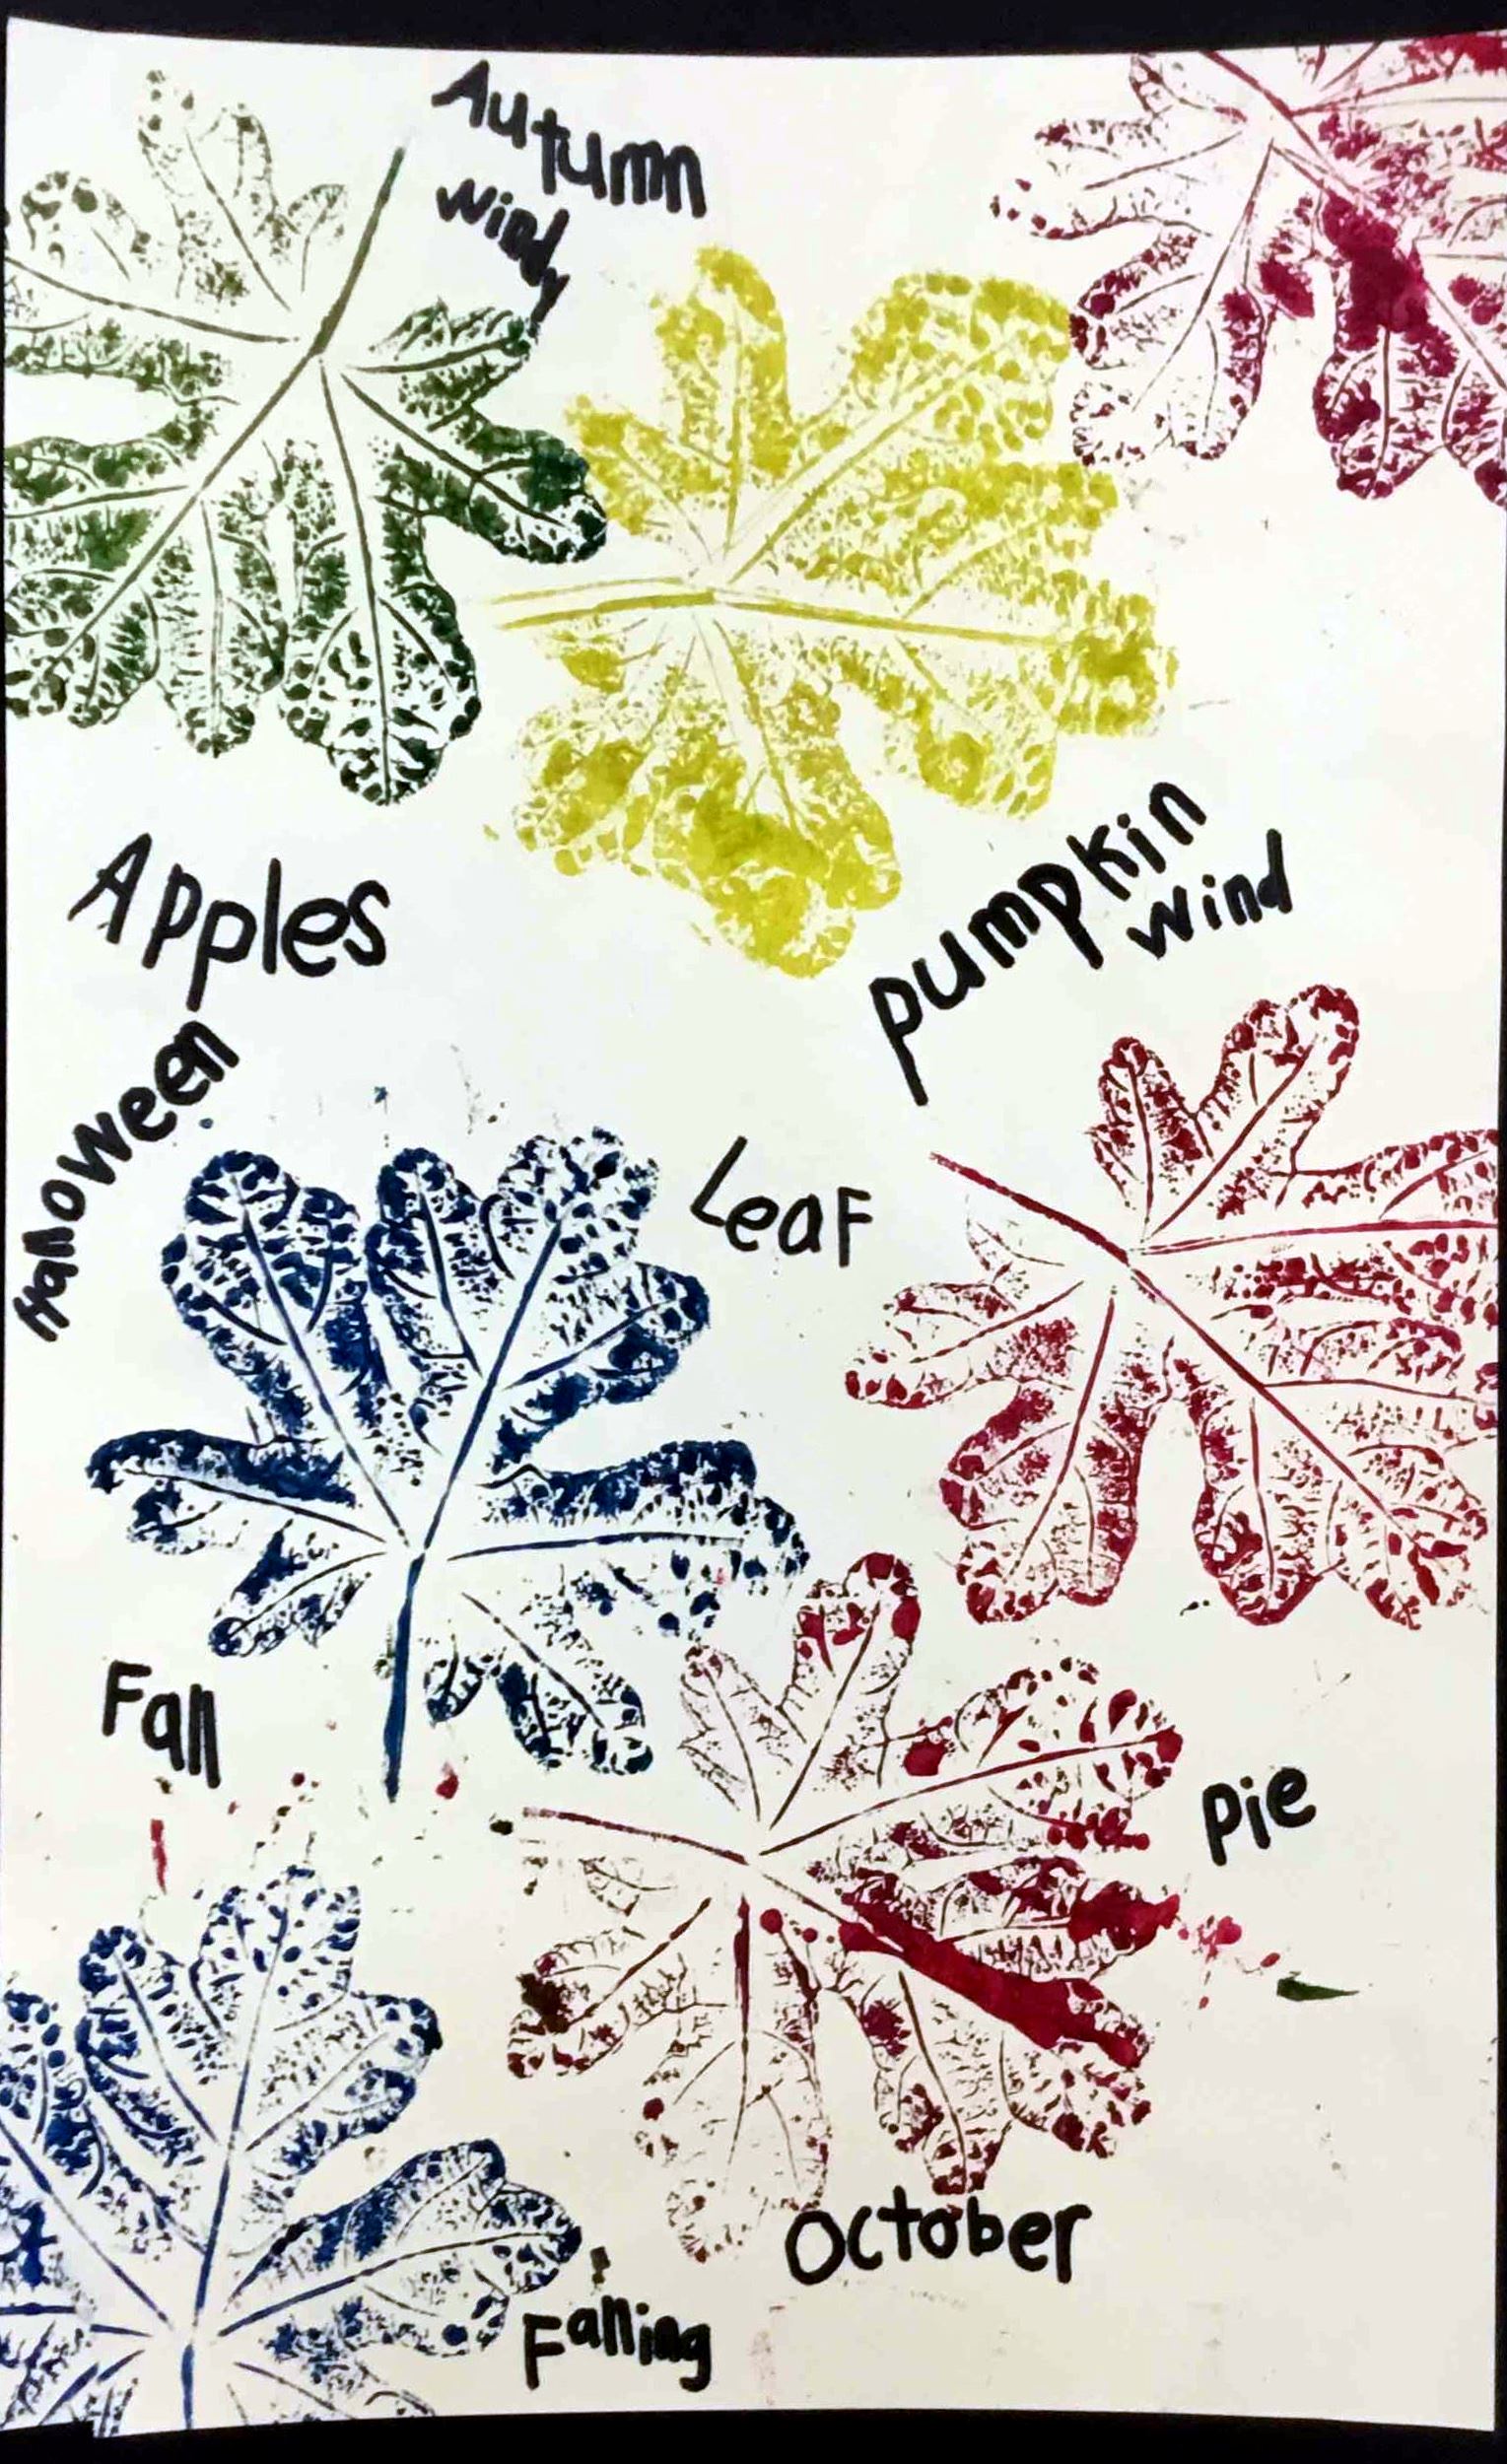 Autumn
windy
Apples
pumpkin
wind
Halloween
Leaf
Fall
pie
October
Falling